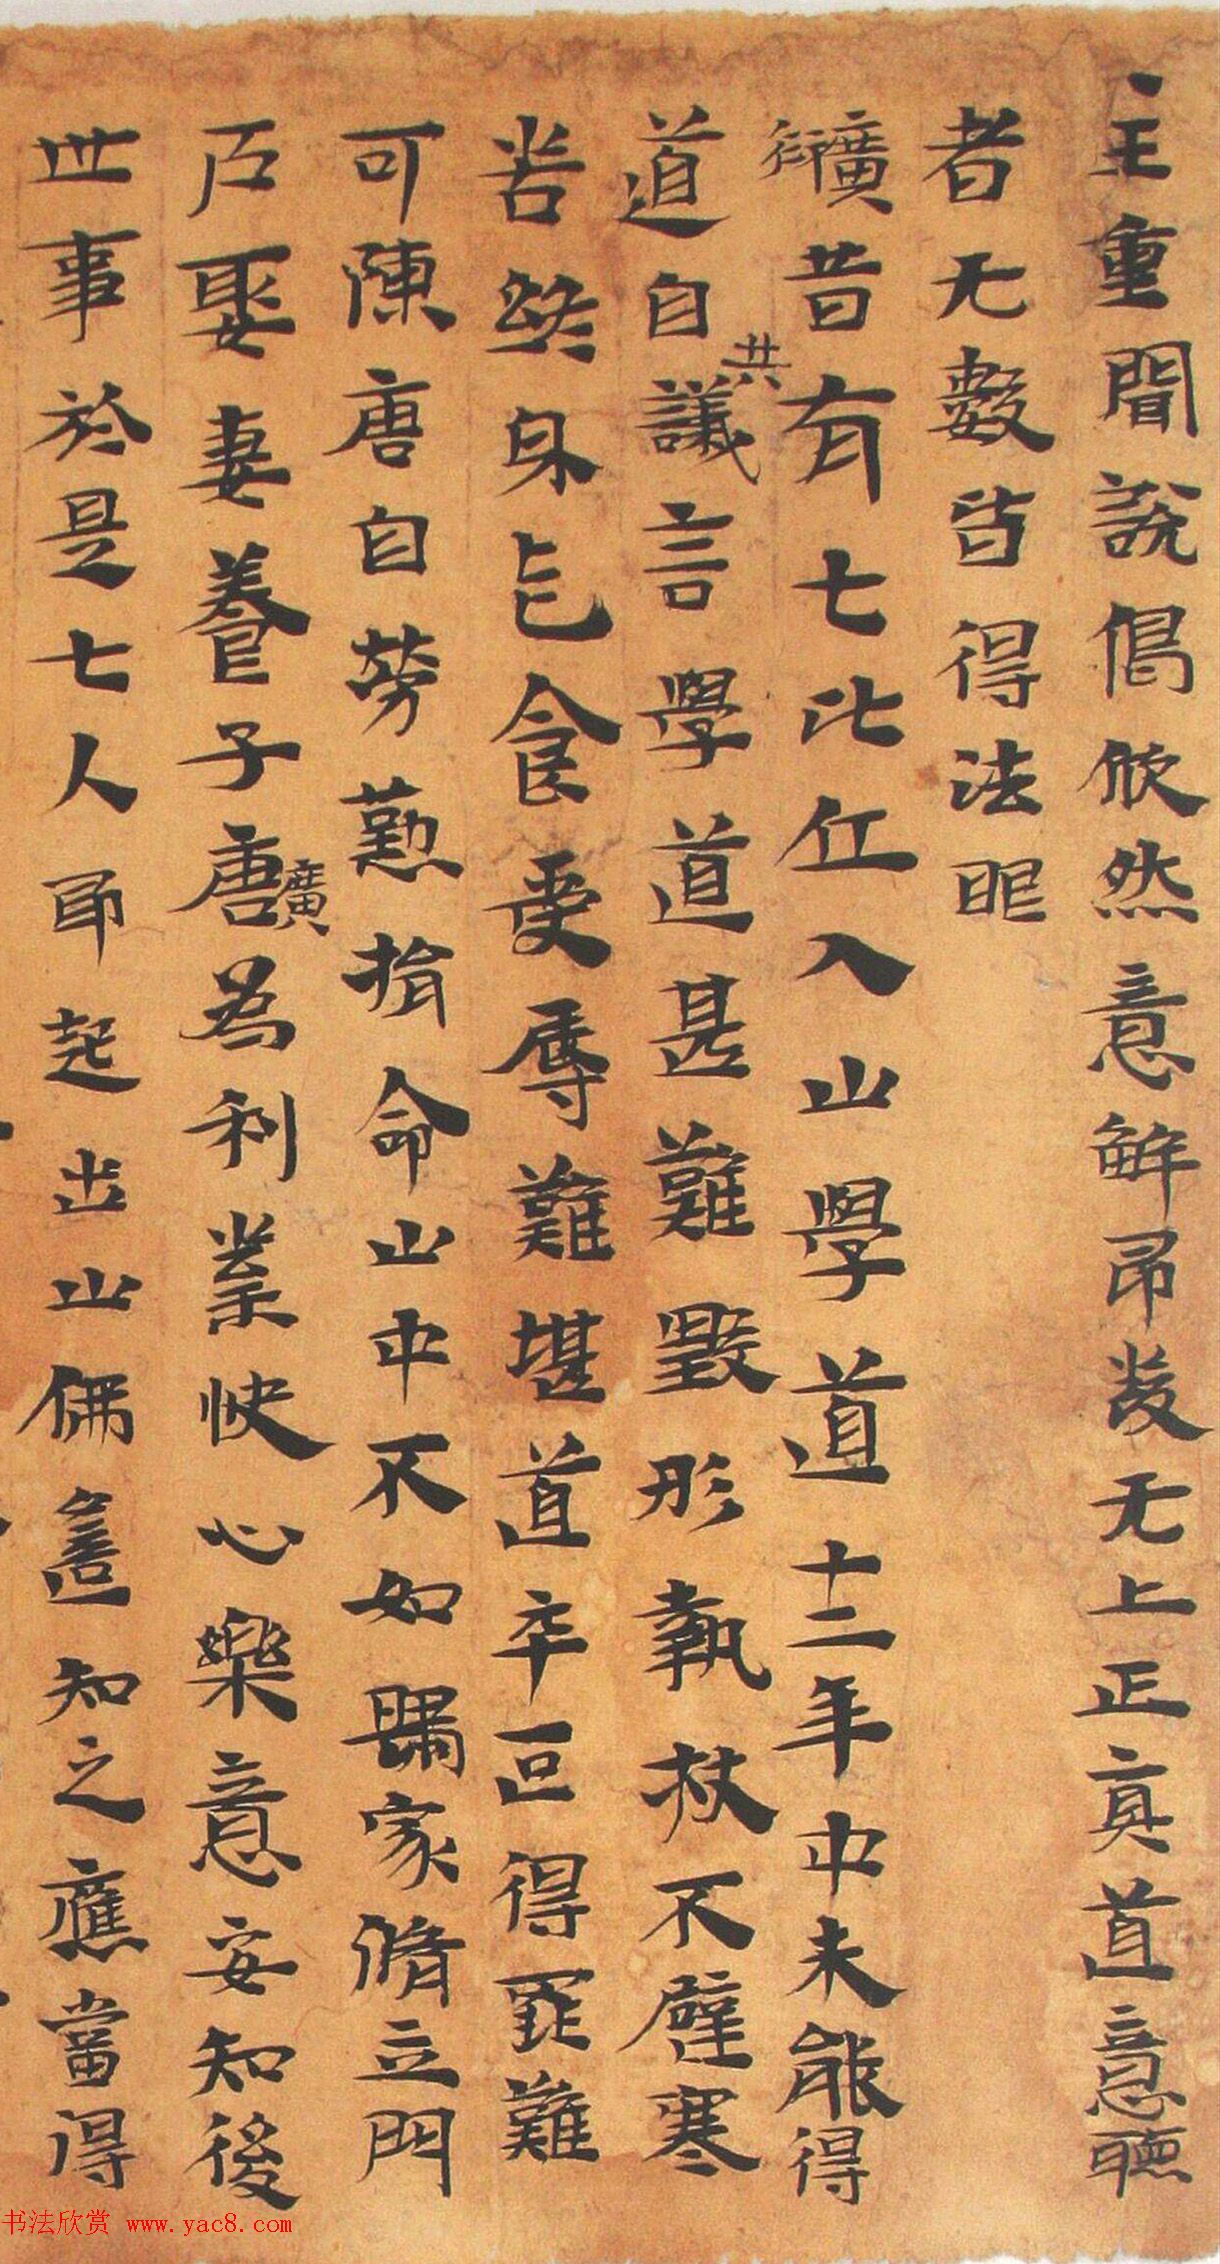 主重聞說偈欣然意解即發无上正真道意聽
者无數皆得法眼
昔有七比丘入山學道十二年中未能得
衍廣
道自議言學道甚難毀形執杖不避寒
共
苦終身乞食受辱難堪道卒叵得罪難
可陳唐自勞懃捐命山中不如歸家脩立門
戶娶妻養子唐為利業快心樂意安知後
廣
世事於是七人即起出山佛遙知之應當得
书法欣赏 www.yac8.com